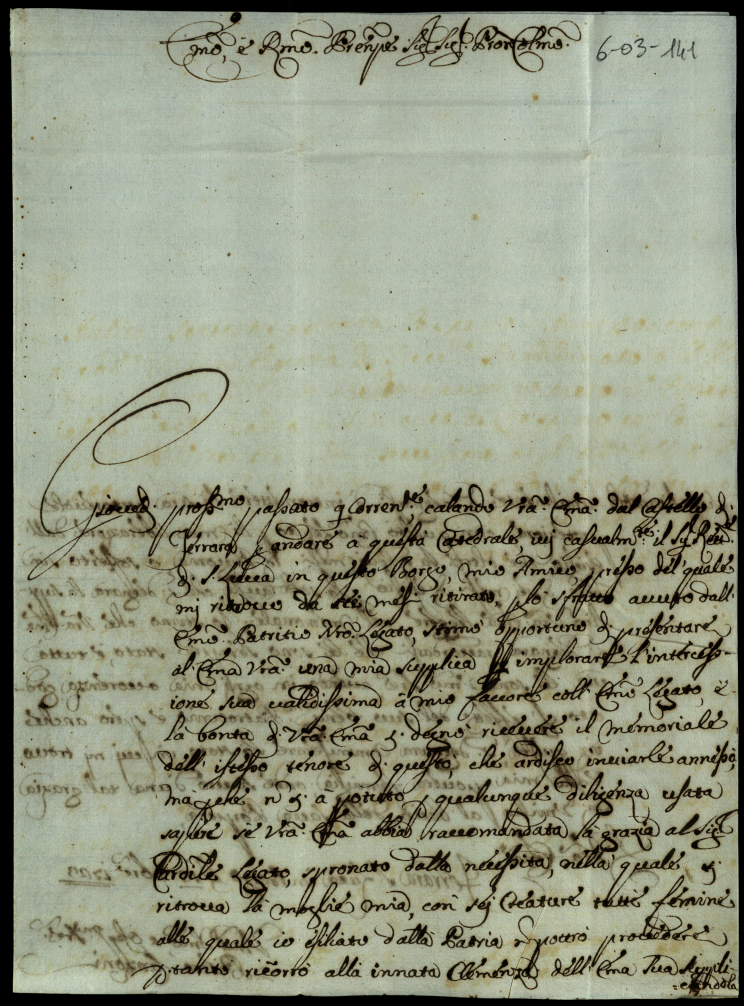 Emo, e Rmo. Prenpe Sig. Sig. Pron Colmo.
6-03-141
Giovedì prossmo passato corrente calando Vra. Ema. dal Castello di
Ferrara andare à questa Catedrale, ivi casualmte il Sig. Rett.
di S. Lucca in questo Borgo, mio Amico presso del quale
mi ritrovo da sei mesi ritirato, p lo sfratto avuto dall'
Emo. Patritio Nro. Legato, stimò opportuno di presentare
al Ema Vra. una mia supplica p implorare l'intercess-
ione sua validissima à mio favore coll' Emo Legato, e
la bontà di Vra Ema si degnò ricevere il memoriale
dell' istesso tenore di questo, che ardisco inviarle annesso,
mà pche n si à potuto p qualunque diligenza usata
sapere se Vra. Ema abbia raccomandata la grazia al Sig.
Cardile Legato, spronato dalla necessità, nella quale si
ritrova la moglie mia, con sei Creature tutte femine
alle quale io esiliato dalla Patria n posso provedere
ptanto ricorro alla innata Clemenza dell' Ema Sua suppli-
=candola